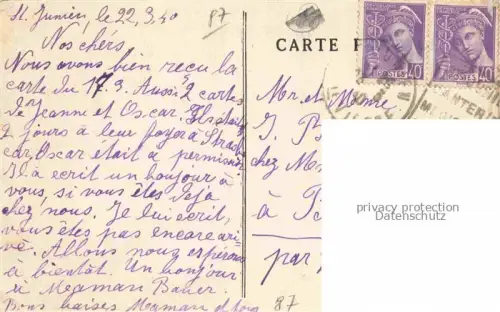 St. Junien, le 22.3.40
87
Nos chérs
Nous avons bien recu la
carte du 17.3. Aussi 2 cartes
de Jeanne et Oscar. Ils étaient
2 jours à leur foyer à Strasb
car, Oscar était a permission
Il à écrit un bonjour à
vous, si vous êtes deja
chez nous. Je lui écrit,
vous êtes pas encore ari-
vé. Allons nous espérons
à bientôt. Un bonjour
à Meaman Bauer.
Bons baises Meaman
CARTE P
POSTES 40
POSTES 40
Mr. et Mme
J. B
chez M
à
par
87
privacy protection
Datenschutz